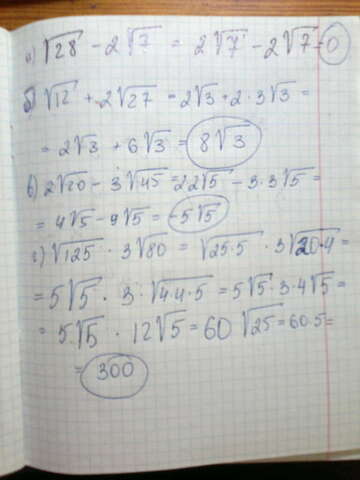 а) √28 - 2√7 = 2√7 - 2√7 = 0
б) √12 + 2√27 = 2√3 + 2·3√3 =
= 2√3 + 6√3 = 8√3
в) 2√20 - 3√45 = 2·2√5 - 3·3√5 =
= 4√5 - 9√5 = -5√5
г) √125 · 3√80 = √25·5 · 3√20·4 =
= 5√5 · 3·√4·4·5 = 5√5·3·4√5 =
= 5√5 · 12√5 = 60√25 = 60·5 =
= 300